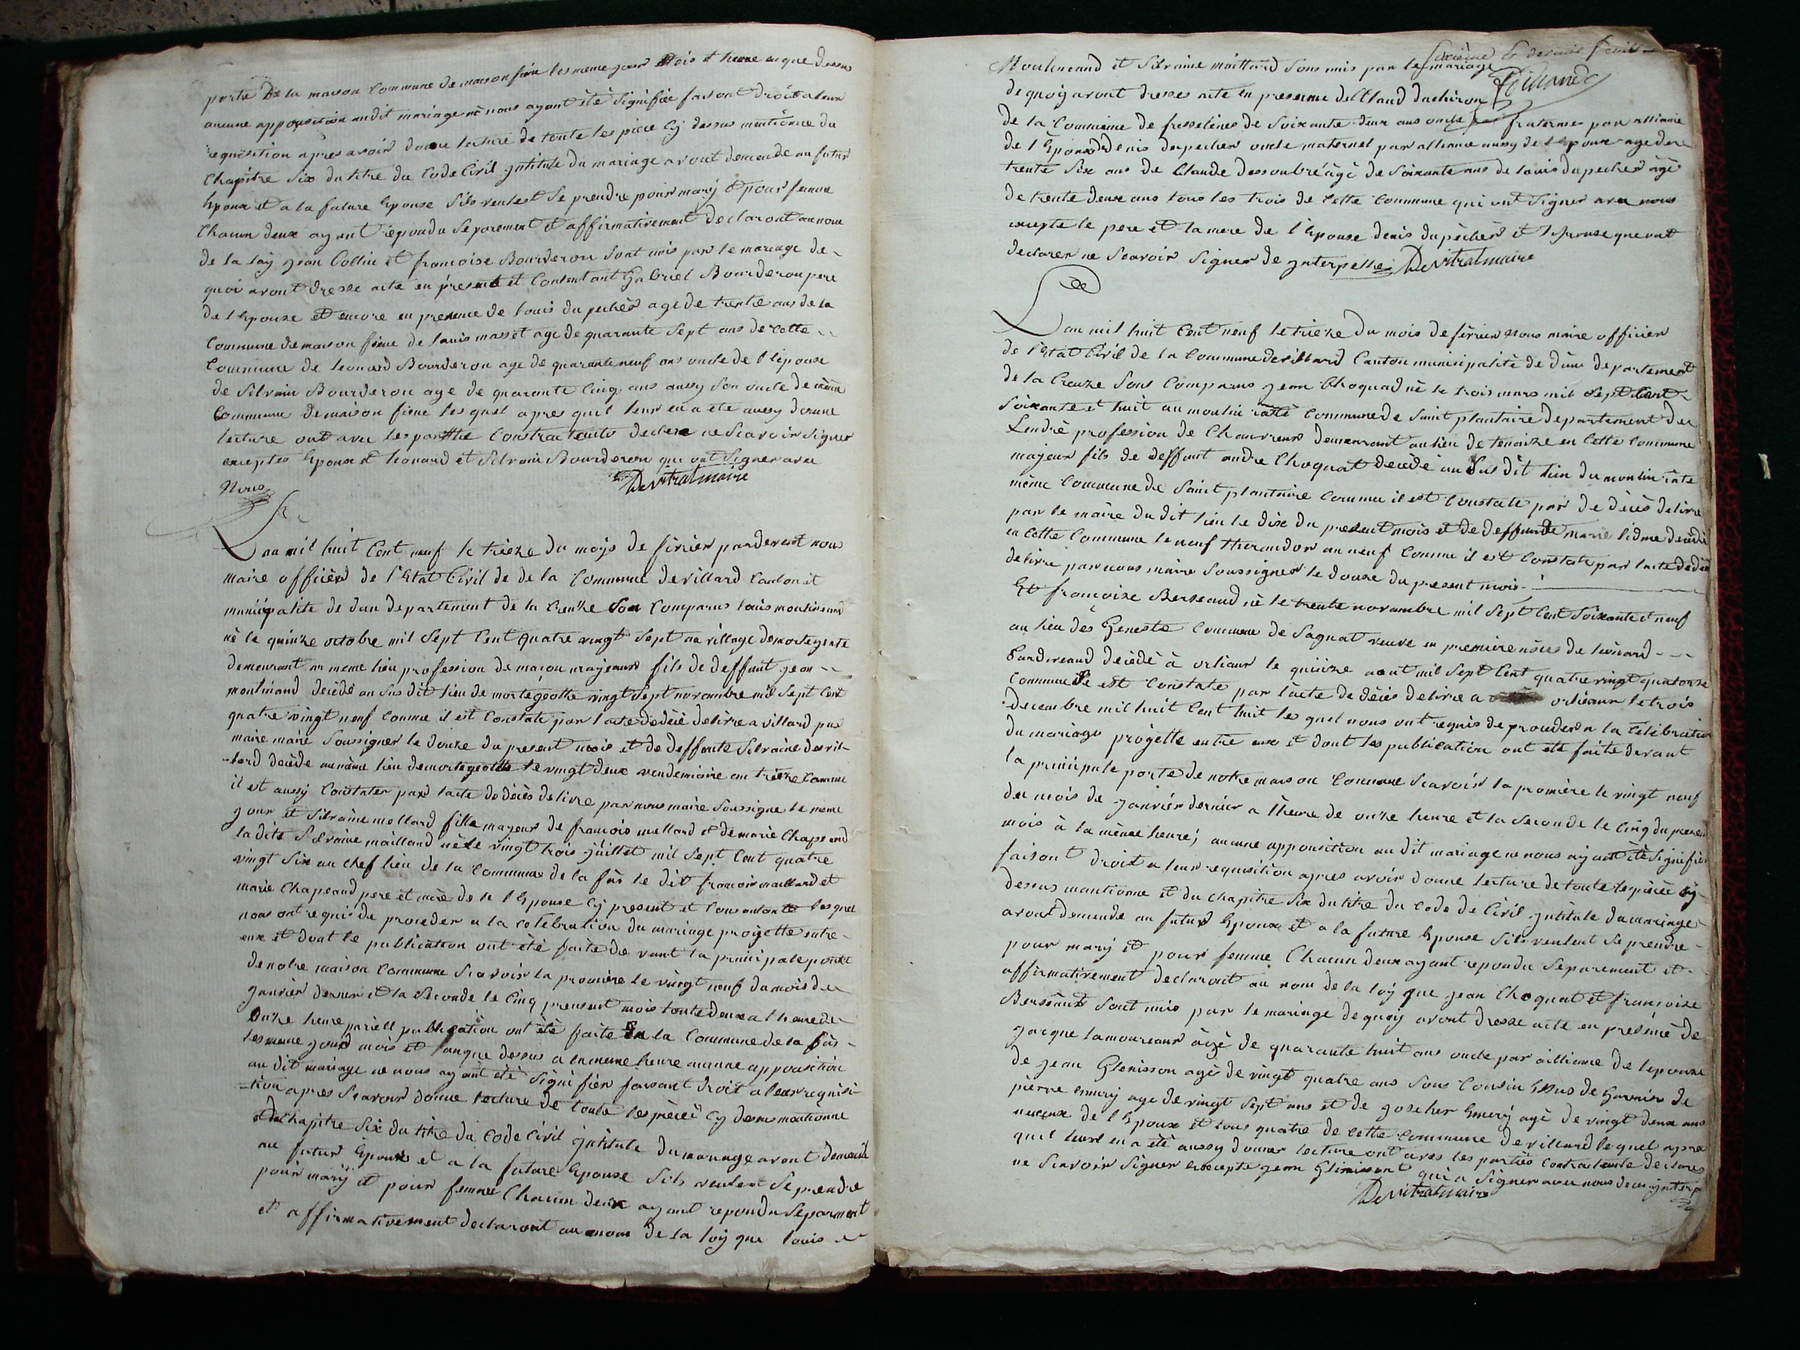 porte de la maison Commune de maison fiene les meme jour mois et heure que dessus
aucune apposition audit mariage ne nous ayant été Signifiée faisont droit a leur
requisition apres avoir donne lecture de toute les piece Cy dessus mentionne du
Chapitre Six du titre du Code Civil Intitule du mariage avont demende au futur
Epoux et a la future Epouse Sils veulent Se prendre pour mary et pour femme
Chacun deux ayant repondu Séparement et affirmativement declaront au nom
de la loy jean Collin et françoise Bourderon Sont unis par le mariage de
quoi avont dresse acte en present et Consentant Gabriel Bourderon pere
de l'Epouze et encore en presence de louis dupechér age de trente ans de la
Commune de maison fiene de louis masset age de quarante Sept ans de cette
Commune de leonard Bourderon age de quarante neuf ans oncle de l'Epouse
de Silvain Bourderon age de quarante Cinq ans aussy Son oncle de même
Commune de maison fiene les quel apres quil leur en a ete aussy donne
lecture ont avec les parttie Contractante declere ne Scavoir Signer
exceptes Epoux et leonard et Silvain Bourderon qui ont Signer avec
Nous Devitrat maire
Lan mil huit Cent neuf le trieze du mois de fevrier pardevent nous
maire officier de l'Etat Civil de de la Commune de villard Canton et
municipalite de dun departement de la Creuze Son Comparus louis moulineaud
né le quinze octobre mil Sept Cent quatre vingt Sept au village de mortegoutte
demeurant au meme lieu profession de maçon majeur fils de deffunt jean
moulinaud decede au Sus dit lieu de mortegoutte vingt Sept novembre mil Sept Cent
quatre vingt neuf comme il est Constate par l'acte de décé delivre a villard par
maire maire Soussigner le douze du present mois et de deffunte Silvaine devil-
lard decede au même lieu de mortegoutte le vingt deux vendemiaire an trieze Comme
il et aussy Constater par lacte de décés delivre par nous maire Soussigne le meme
jour et Silvaine mallard fille mayeur de francois mallard et de marie Chapeaud
la dite Silvaine maillard née le vingt trois juillet mil Sept Cent quatre
vingt Six au chef lieu de la Commune de la fas le dit francois maillard et
marie Chapeaud pere et mère de l'Epouse Cy present et Consentante les quel
nous ont requis de proceder a la celebration du mariage progette entre
eux et dont le publication ont été faite de vant la principale porte
de notre maison Commune Scavoir la premiére le vingt neuf du mois de
janvier dernier et la Seconde le Cinq present mois toute deux a lheure de
Onze heure pareill publication ont été faite de la Commune de la fas
les meme jour mois et an que dessus a la meme heure aucune apposition
au dit mariage ne nous ayant été Signifier faisant droit a leur requisi-
tion apres Scavoir donne lecture de toute les piéce Cy dessus mentionne
et du Chapitre Six du titre du Code Civil Intitule du mariage avont demende
au futur Epoux et a la future Epouse Sils veulent Se prendre
pour mary et pour femme Chacun deux ayant repondu Séparement
et affirmativement declaront au nom de la loy que louis
Sixième et dernier feuille
Moulineaud et Silvaine maillard Sons unis par le mariage
de quoy avont dresses acte en presence de Claud duchiron
de la Commune de fresselines de Soixante deux ans oncle fraternel par alliance
de l'Epouse denis dupecher oncle maternel par alliance aussy de l'Epouse age de
trente Six ans de Claude dessoubre âgé de Soixante ans de louis dupecher âgé
de trente deux ans tous les trois de Cette Commune qui ont Signer avec nous
excepte le pere et la mere de l'Epouse denis dupecher et l'Epouse que ont
declarer ne Scavoir Signer de jnterpeller Devitrat maire
Lan mil huit Cent neuf le trieze du mois de fevrier nous maire officier
de l'Etat Civil de la Commune de villard Canton municipalité de dune departement
de la Creuze Sons Comparus jean Choquad né le trois mars mil Sept Cent
Soixante et huit au moulin raté Commune de Saint plantaire departement de
Lendré profession de Chauvreur demeurant au lieu de tenaize en Cette Commune
majeur fils de deffunt andre Choquat decédé au Sus dit lieu du moulin raté
même Commune de Saint plantaire Comme il est Constate par de décés delivre
par le maire du dit lieu le dix du present mois et de deffunte marie lidme decede
en Cette Commune le neuf thermidor an neuf Comme il est Constate par lacte de décé
delivre par nous maire Soussigner le douze du present mois
Et françoize Berseaud né le trente novembre mil Sept Cent Soixante et neuf
au lieu dés Geneste Commune de Sagnat veuve en premiere nôces de leonard
Bardireaud decédé à orleans le quinze aout mil Sept Cent quatre vingt quatorze
Comme il est Constate par l'acte de décés delivre a orleans le trois
decembre mil huit Cent huit les quel nous ont requis de proceder a la Celebration
du mariage progette entre eux et dont les publication ont été faite devant
la principale porte de notre maison Commune Scavoir la premiére le vingt neuf
du mois de janvier dernier a lheure de onze heure et la Seconde le Cinq du present
mois à la même heure, aucune apposition au dit mariage ne nous ayant été Signifiér
faisont droit a leur requisition apres avoir donne lecture de toute les piéce Cy
dessus mantionne et du chapitre Six du titre du Code de Civil jntitule du mariage
avont demende au futur Epoux et a la future Epouse Sils veulent Se prendre
pour mary et pour femme Chacun deux ayant repondu Séparement et
affirmativement declaront au nom de la loy que jean Choquat et françoize
Berseaud Sont unis par le mariage de quoy avont dresse acte en presence de
jacque lamoureaux âgé de quarante huit ans oncle par allianse de lepouze
de jean Glenisson agé de vingt quatre ans Sous Cousin
pierre emery age de vingt Sept ans et de Emery agé de vingt deux ans
neveux de l'Epoux et tous quatre de Cette Commune de villard le quel apre
quil leur en a été aussy donner lecture ont avec les parties Contractante declarer
ne Scavoir Signer Excepte jean Glenisson qui a Signer avec nous de jnterp
Devitrat maire